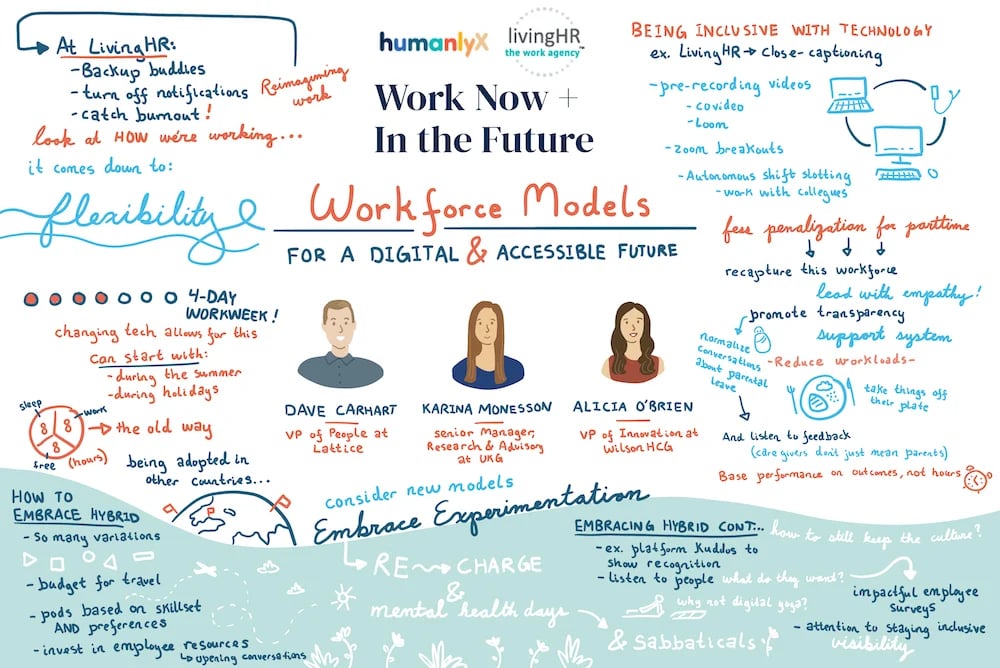 At LivingHR:
-Backup buddies
-turn off notifications
-catch burnout!
Reimagining
work
look at HOW we're working...
it comes down to:
flexibility
humanlyX
livingHR
the work agency™
Work Now +
In the Future
Workforce Models
FOR A DIGITAL & ACCESSIBLE FUTURE
BEING INCLUSIVE WITH TECHNOLOGY
ex. LivingHR → Close-captioning
-pre-recording videos
-covideo
-Loom
-zoom breakouts
-Autonomous shift slotting
-work with collegues
fess penalization for parttime
recapture this workforce
lead with empathy!
promote transparency
support system
normalize
conversations
about parental
leave
-Reduce workloads-
take things off
their plate
And listen to feedback
(care givers don't just mean parents)
Base performance on outcomes, not hours
4-DAY
WORKWEEK!
changing tech allows for this
can start with:
-during the summer
-during holidays
sleep
work
8
8
8
free
(hours)
the old way
being adopted in
other countries...
DAVE CARHART
VP of People at
Lattice
KARINA MONESSON
senior Manager,
Research & Advisory
at UKG
ALICIA O'BRIEN
VP of Innovation at
WilsonHCG
consider new models
Embrace Experimentation
RE→CHARGE
&
mental health days
& sabbaticals
HOW TO
EMBRACE HYBRID
- So many variations
- budget for travel
- pods based on skillset
AND preferences
- invest in employee resources
↳ opening conversations
EMBRACING HYBRID CONT...
how to still keep the culture?
- ex. platform Kuddos to
show recognition
- listen to people what do they want?
why not digital yoga?
impactful employee
surveys
- attention to staying inclusive
visibility